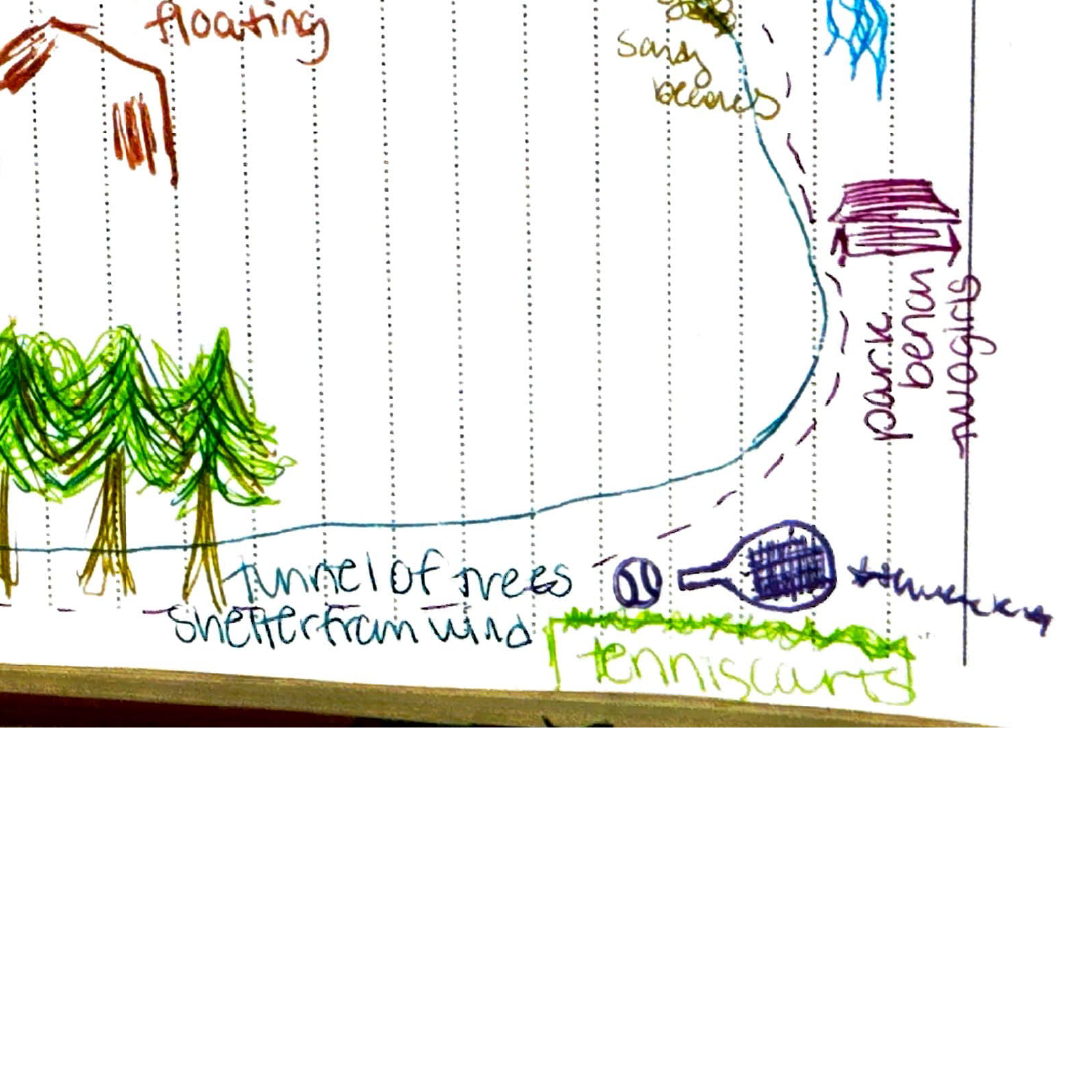 floating
sandy
park
bench
two girls
tunnel of trees
shelter from wind
tennis courts